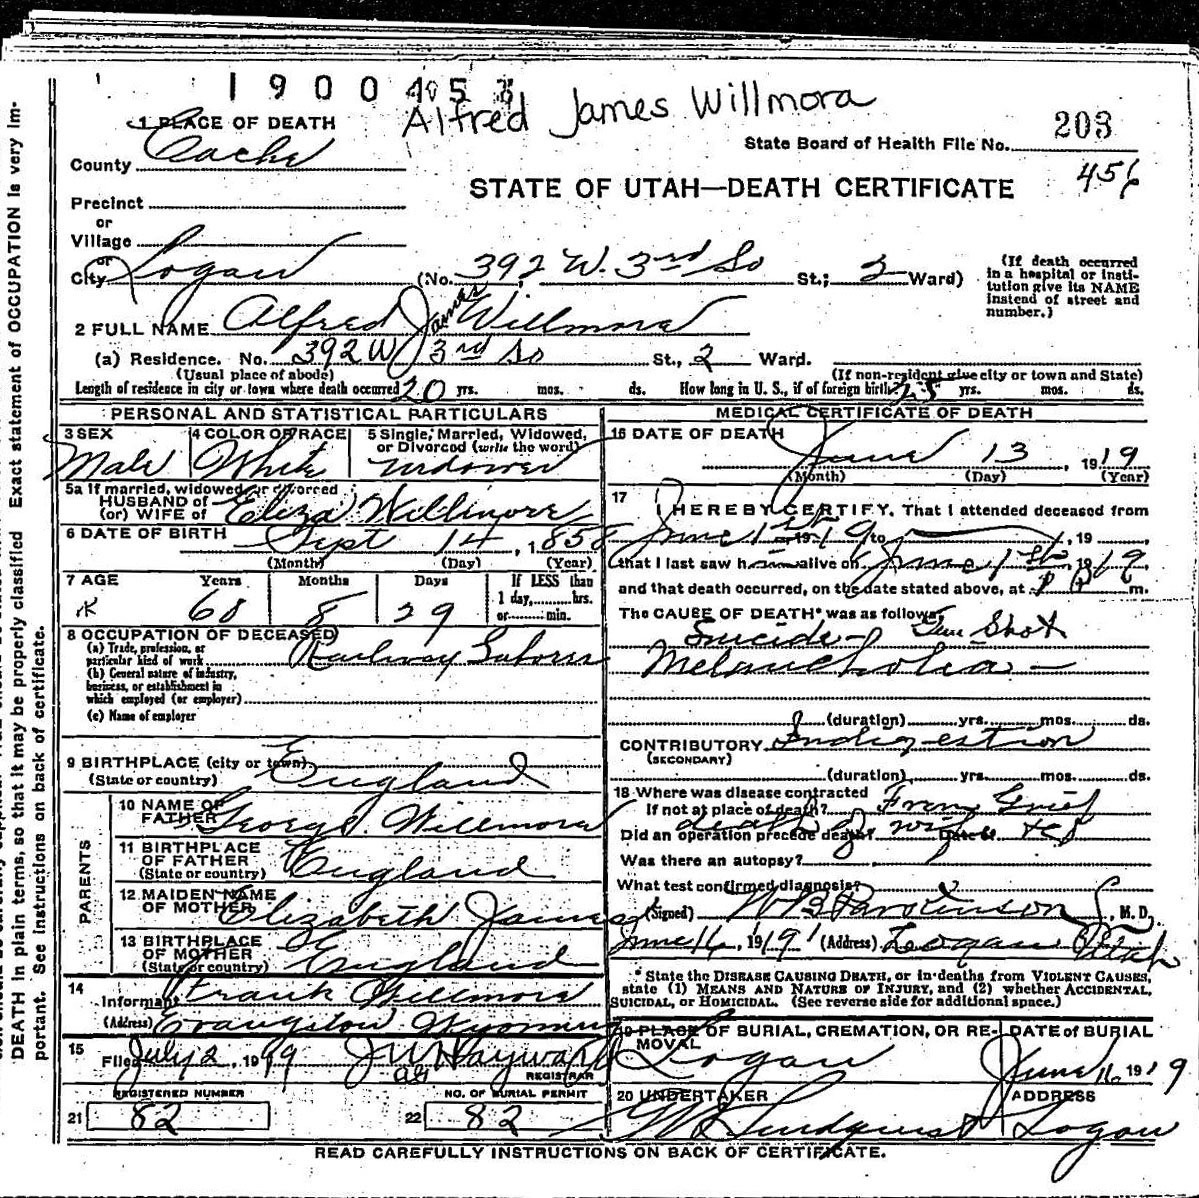 1900453
Alfred James Willmora
1 PLACE OF DEATH
State Board of Health File No. 203
County Cache
456
STATE OF UTAH—DEATH CERTIFICATE
Precinct
or
Village
or
City Logan (No. 392 W. 3rd So St.; 2 Ward)
(If death occurred in a hospital or institution give its NAME instead of street and number.)
2 FULL NAME Alfred James Willmora
(a) Residence. No. 392 W 3rd So St., 2 Ward.
(Usual place of abode) (If non-resident give city or town and State)
Length of residence in city or town where death occurred 20 yrs. mos. ds. How long in U. S., if of foreign birth? 25 yrs. mos. ds.
PERSONAL AND STATISTICAL PARTICULARS
3 SEX Male
4 COLOR OR RACE White
5 Single, Married, Widowed, or Divorced (write the word) widower
5a If married, widowed or divorced
HUSBAND of
(or) WIFE of Eliza Willmore
6 DATE OF BIRTH Sept 14, 1858
(Month) (Day) (Year)
7 AGE Years Months Days If LESS than
1 day,......hrs.
or......min.
60 8 29
8 OCCUPATION OF DECEASED
(a) Trade, profession, or
particular kind of work Railway Laborer
(b) General nature of industry,
business, or establishment in
which employed (or employer)
(c) Name of employer
9 BIRTHPLACE (city or town) England
(State or country)
PARENTS
10 NAME OF
FATHER George Willmora
11 BIRTHPLACE
OF FATHER England
(State or country)
12 MAIDEN NAME
OF MOTHER Elizabeth James
13 BIRTHPLACE
OF MOTHER England
(State or country)
14
Informant Frank Willmora
(Address) Evangston Wyoming
15
Filed July 2, 1919 J W Hayward
REGISTRAR
REGISTERED NUMBER NO. OF BURIAL PERMIT
21 82 22 82
MEDICAL CERTIFICATE OF DEATH
16 DATE OF DEATH June 13, 1919
(Month) (Day) (Year)
17
I HEREBY CERTIFY, That I attended deceased from
June 1st 1919 to , 19
that I last saw him alive on June 1st, 1919
and that death occurred, on the date stated above, at m.
The CAUSE OF DEATH* was as follows:
Suicide - Gun Shot
Melancholia -
(duration) yrs. mos. ds.
CONTRIBUTORY Indigestion
(SECONDARY)
(duration) yrs. mos. ds.
18 Where was disease contracted
If not at place of death? From Grief
death of wife
Did an operation precede death? Date of
Was there an autopsy?
What test confirmed diagnosis?
(Signed) W B Parkinson, M. D.
June 16, 1919 (Address) Logan Utah
* State the DISEASE CAUSING DEATH, or in deaths from VIOLENT CAUSES,
state (1) MEANS AND NATURE OF INJURY, and (2) whether ACCIDENTAL,
SUICIDAL, or HOMICIDAL. (See reverse side for additional space.)
19 PLACE OF BURIAL, CREMATION, OR REMOVAL Logan
DATE of BURIAL June 16 1919
20 UNDERTAKER Lindquist
ADDRESS Logan
READ CAREFULLY INSTRUCTIONS ON BACK OF CERTIFICATE.
DEATH in plain terms, so that it may be properly classified Exact statement of OCCUPATION is very im-
portant. See instructions on back of certificate.